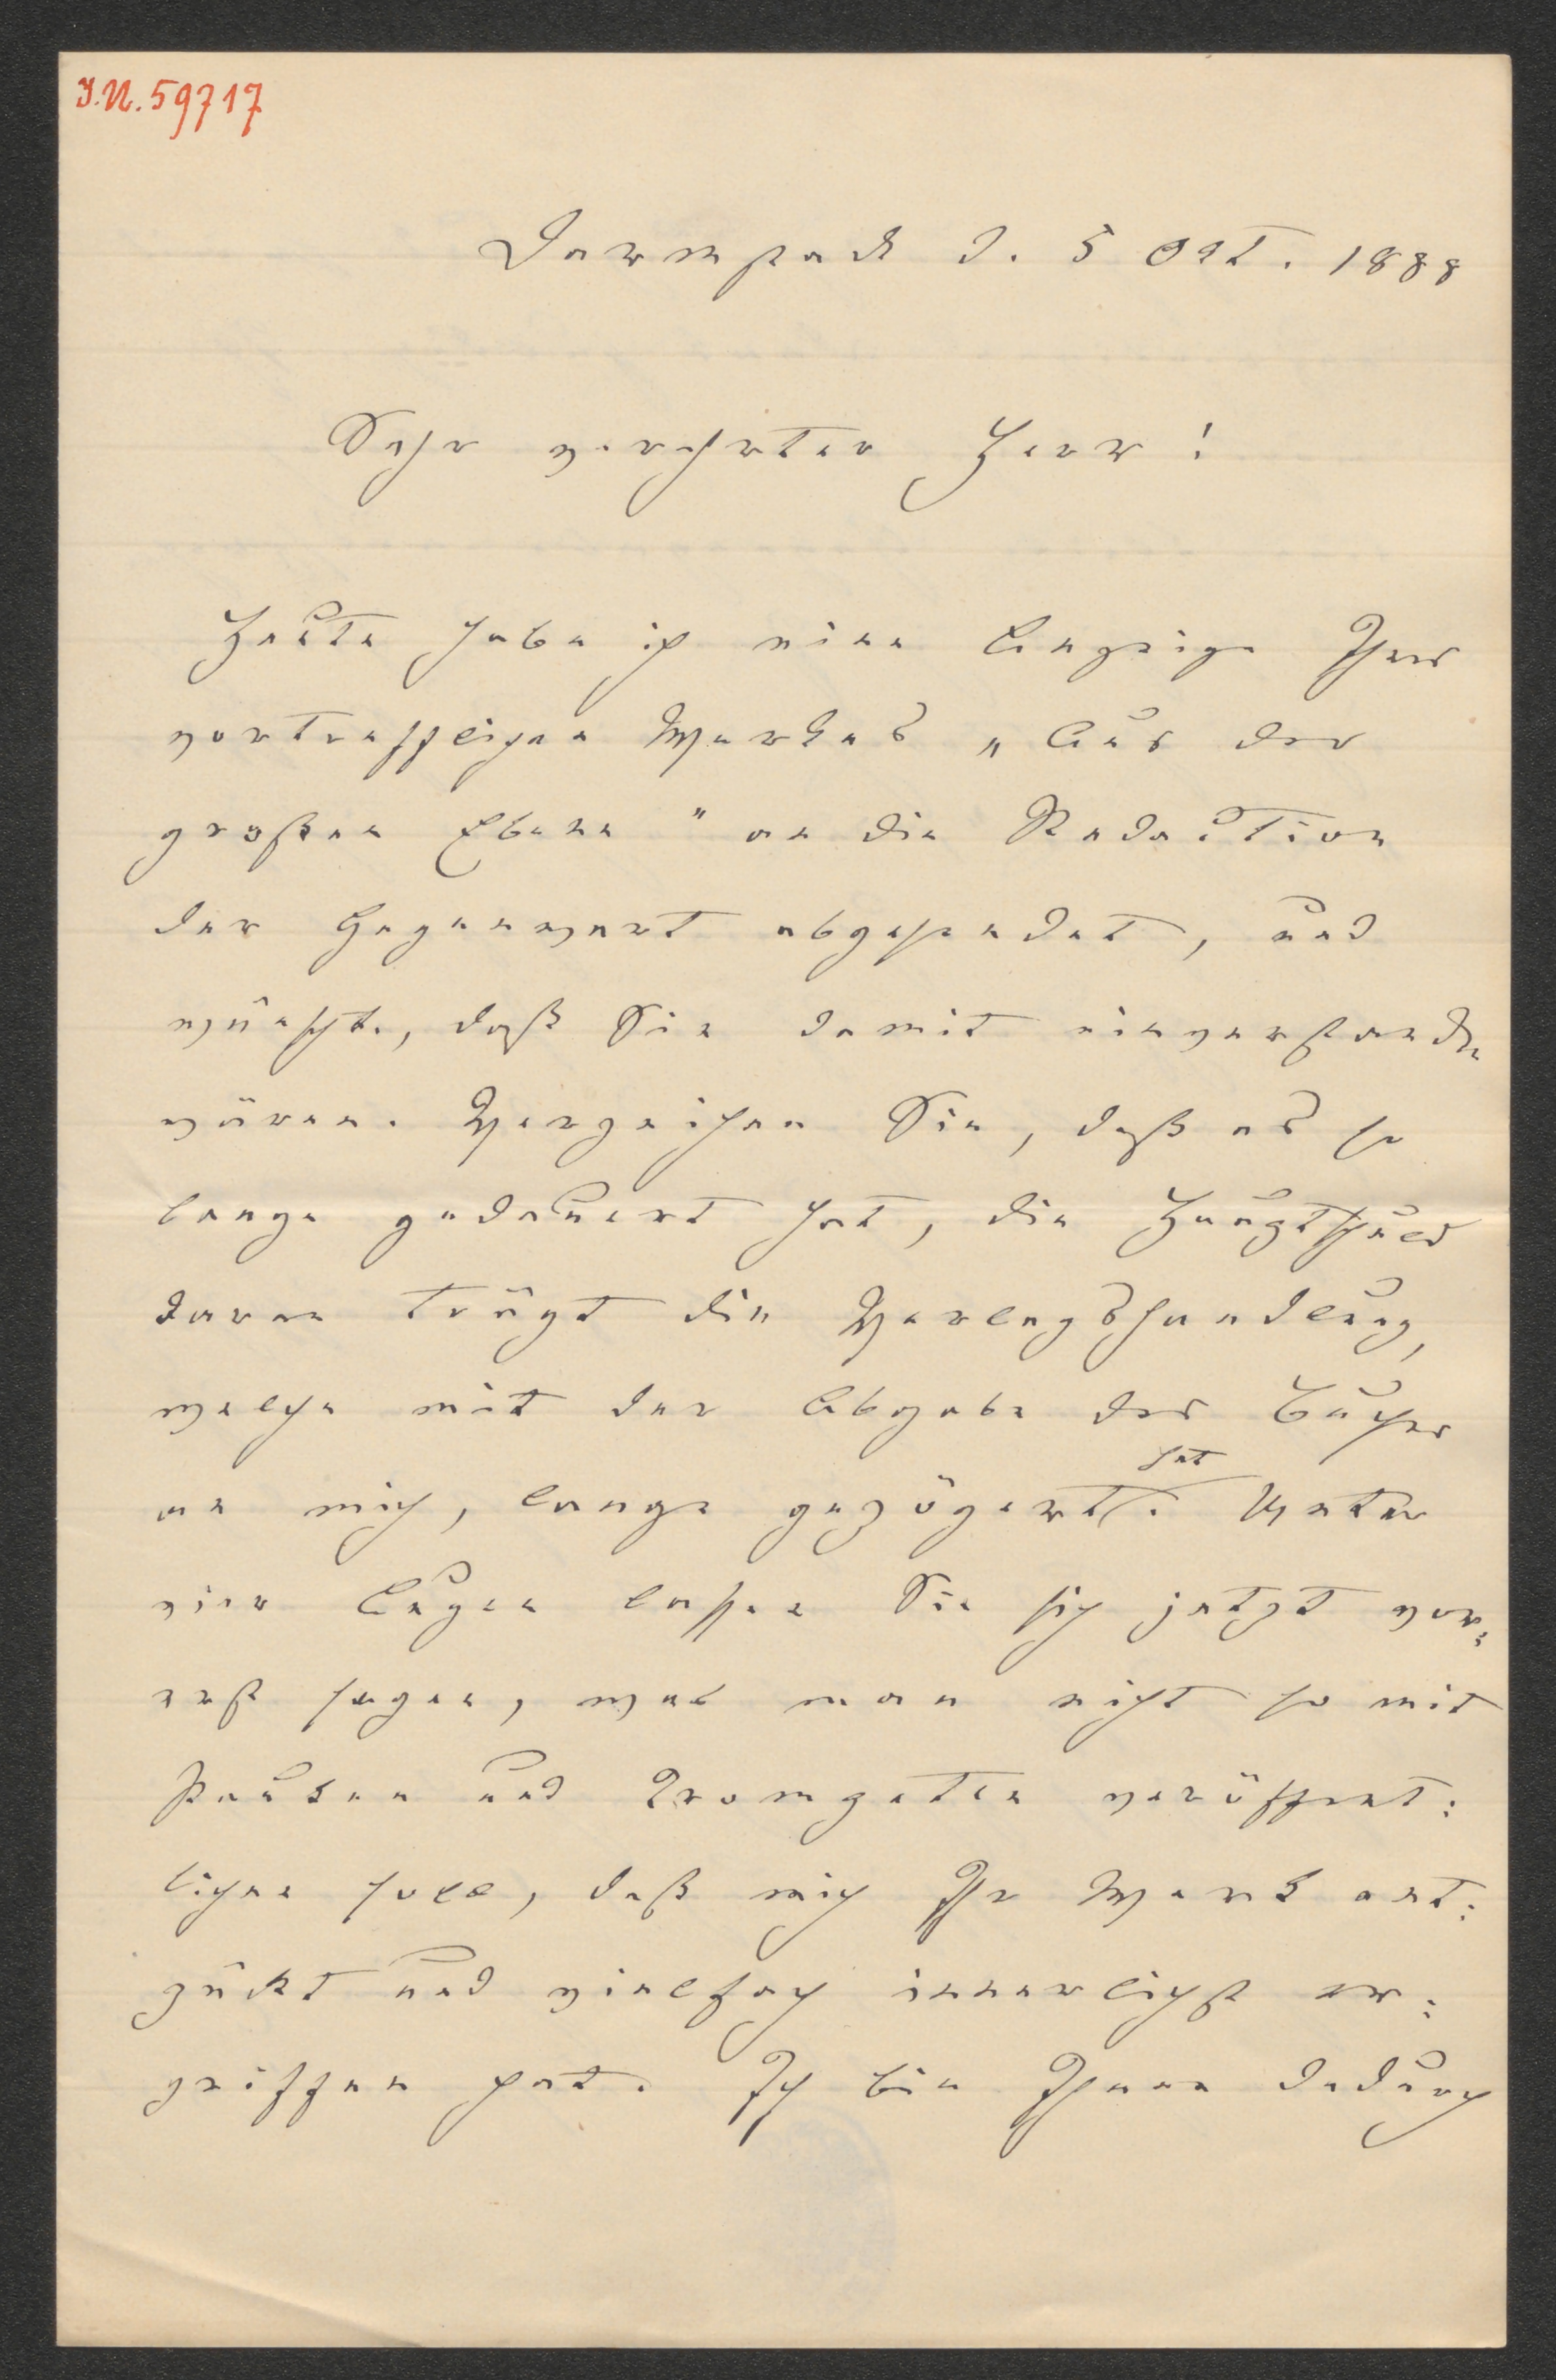 I.N. 59717
Darmstadt d. 5 Okt. 1888
Sehr verehrter Herr!
Heute habe ich eine Anzeige Ihres
vortrefflichen Werkes „Aus der
großen Ebene" an die Redaction
der Gegenwart abgesendet, und
wünscht, daß Sie damit einverstanden
wären. Verzeihen Sie, daß es so
lange gedauert hat, die Hauptschuld
daran trägt die Verlagshandlung,
welche mit der Abgabe des Buches
an mich, lange gezögert hat. Unter
vier Augen lassen Sie sich jetzt vor:
erst sagen, was man nicht so mit
Pauken und Trompeten veröffent:
lichen soll, daß mich Ihr Werk ent:
zückt und vielfach innerlichst er:
griffen hat. Ich bin Ihnen dadurch